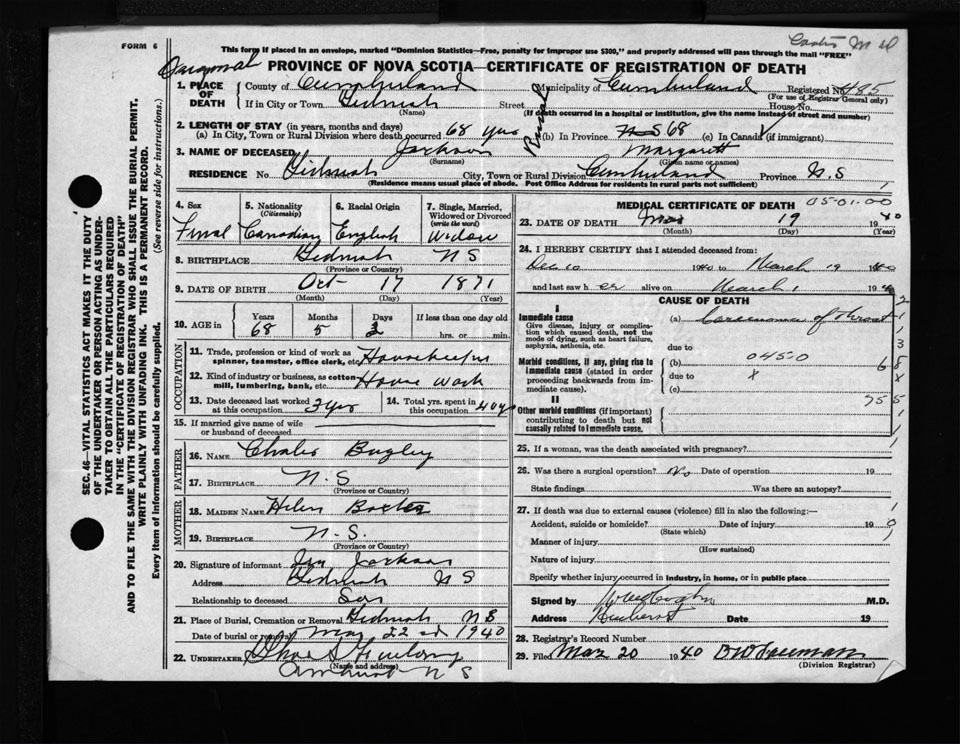 FORM 6
This form if placed in an envelope, marked "Dominion Statistics—Free, penalty for improper use $300," and properly addressed will pass through the mail "FREE"
PROVINCE OF NOVA SCOTIA—CERTIFICATE OF REGISTRATION OF DEATH
1. PLACE OF DEATH County of Cumberland Municipality of Cumberland Registered No. 485
(For use of Registrar General only)
If in City or Town Street House No.
(Name) (If death occurred in a hospital or institution, give the name instead of street and number)
Rural
2. LENGTH OF STAY (in years, months and days)
(a) In City, Town or Rural Division where death occurred 68 yrs (b) In Province N S 68 (c) In Canada (if immigrant)
3. NAME OF DECEASED Jackson Margarett
(Surname) (Given name or names)
RESIDENCE No. City, Town or Rural Division Cumberland Province N.S
(Residence means usual place of abode. Post Office Address for residents in rural parts not sufficient)
4. Sex 5. Nationality (Citizenship) 6. Racial Origin 7. Single, Married, Widowed or Divorced (write the word)
Femal Canadian English Widow
8. BIRTHPLACE N S
(Province or Country)
9. DATE OF BIRTH Oct- 17 1871
(Month) (Day) (Year)
10. AGE in Years Months Days If less than one day old
68 5 2 hrs. or min.
OCCUPATION
11. Trade, profession or kind of work as spinner, teamster, office clerk, etc. Housekeeper
12. Kind of industry or business, as cotton mill, lumbering, bank, etc. House Work
13. Date deceased last worked at this occupation 3 yrs 14. Total yrs. spent in this occupation 40 y
15. If married give name of wife or husband of deceased
FATHER
16. NAME Chales Bagley
17. BIRTHPLACE N. S
(Province or Country)
MOTHER
18. MAIDEN NAME Helen
19. BIRTHPLACE N. S.
(Province or Country)
20. Signature of informant Jackson
Address N S
Relationship to deceased Son
21. Place of Burial, Cremation or Removal N S
Date of burial or removal 22 nd 1940
22. UNDERTAKER
(Name and address)
Amherst N S
MEDICAL CERTIFICATE OF DEATH 05-01-00
23. DATE OF DEATH Mar 19 1940
(Month) (Day) (Year)
24. I HEREBY CERTIFY that I attended deceased from:
Dec 10 1940 to March 19 1940
and last saw h er alive on March 1 194
CAUSE OF DEATH
I
Immediate cause
Give disease, injury or complication which caused death, not the mode of dying, such as heart failure, asphyxia, asthenia, etc.
(a) Carcinoma of throat
due to
Morbid conditions, if any, giving rise to immediate cause (stated in order proceeding backwards from immediate cause).
(b) 0450
due to x
(c)
II
Other morbid conditions (if important) contributing to death but not causally related to immediate cause.
25. If a woman, was the death associated with pregnancy?
26. Was there a surgical operation? No Date of operation 19
State findings Was there an autopsy?
27. If death was due to external causes (violence) fill in also the following:—
Accident, suicide or homicide? Date of injury 19
(State which)
Manner of injury
(How sustained)
Nature of injury
Specify whether injury occurred in industry, in home, or in public place
Signed by M.D.
Address Amherst Date 19
28. Registrar's Record Number
29. Filed Mar 20 1940
(Division Registrar)
SEC. 46—VITAL STATISTICS ACT MAKES IT THE DUTY
OF THE UNDERTAKER OR PERSON ACTING AS UNDERTAKER TO OBTAIN ALL THE PARTICULARS REQUIRED
IN THE "CERTIFICATE OF REGISTRATION OF DEATH"
AND TO FILE THE SAME WITH THE DIVISION REGISTRAR WHO SHALL ISSUE THE BURIAL PERMIT.
WRITE PLAINLY WITH UNFADING INK. THIS IS A PERMANENT RECORD.
Every item of information should be carefully supplied. (See reverse side for instructions.)